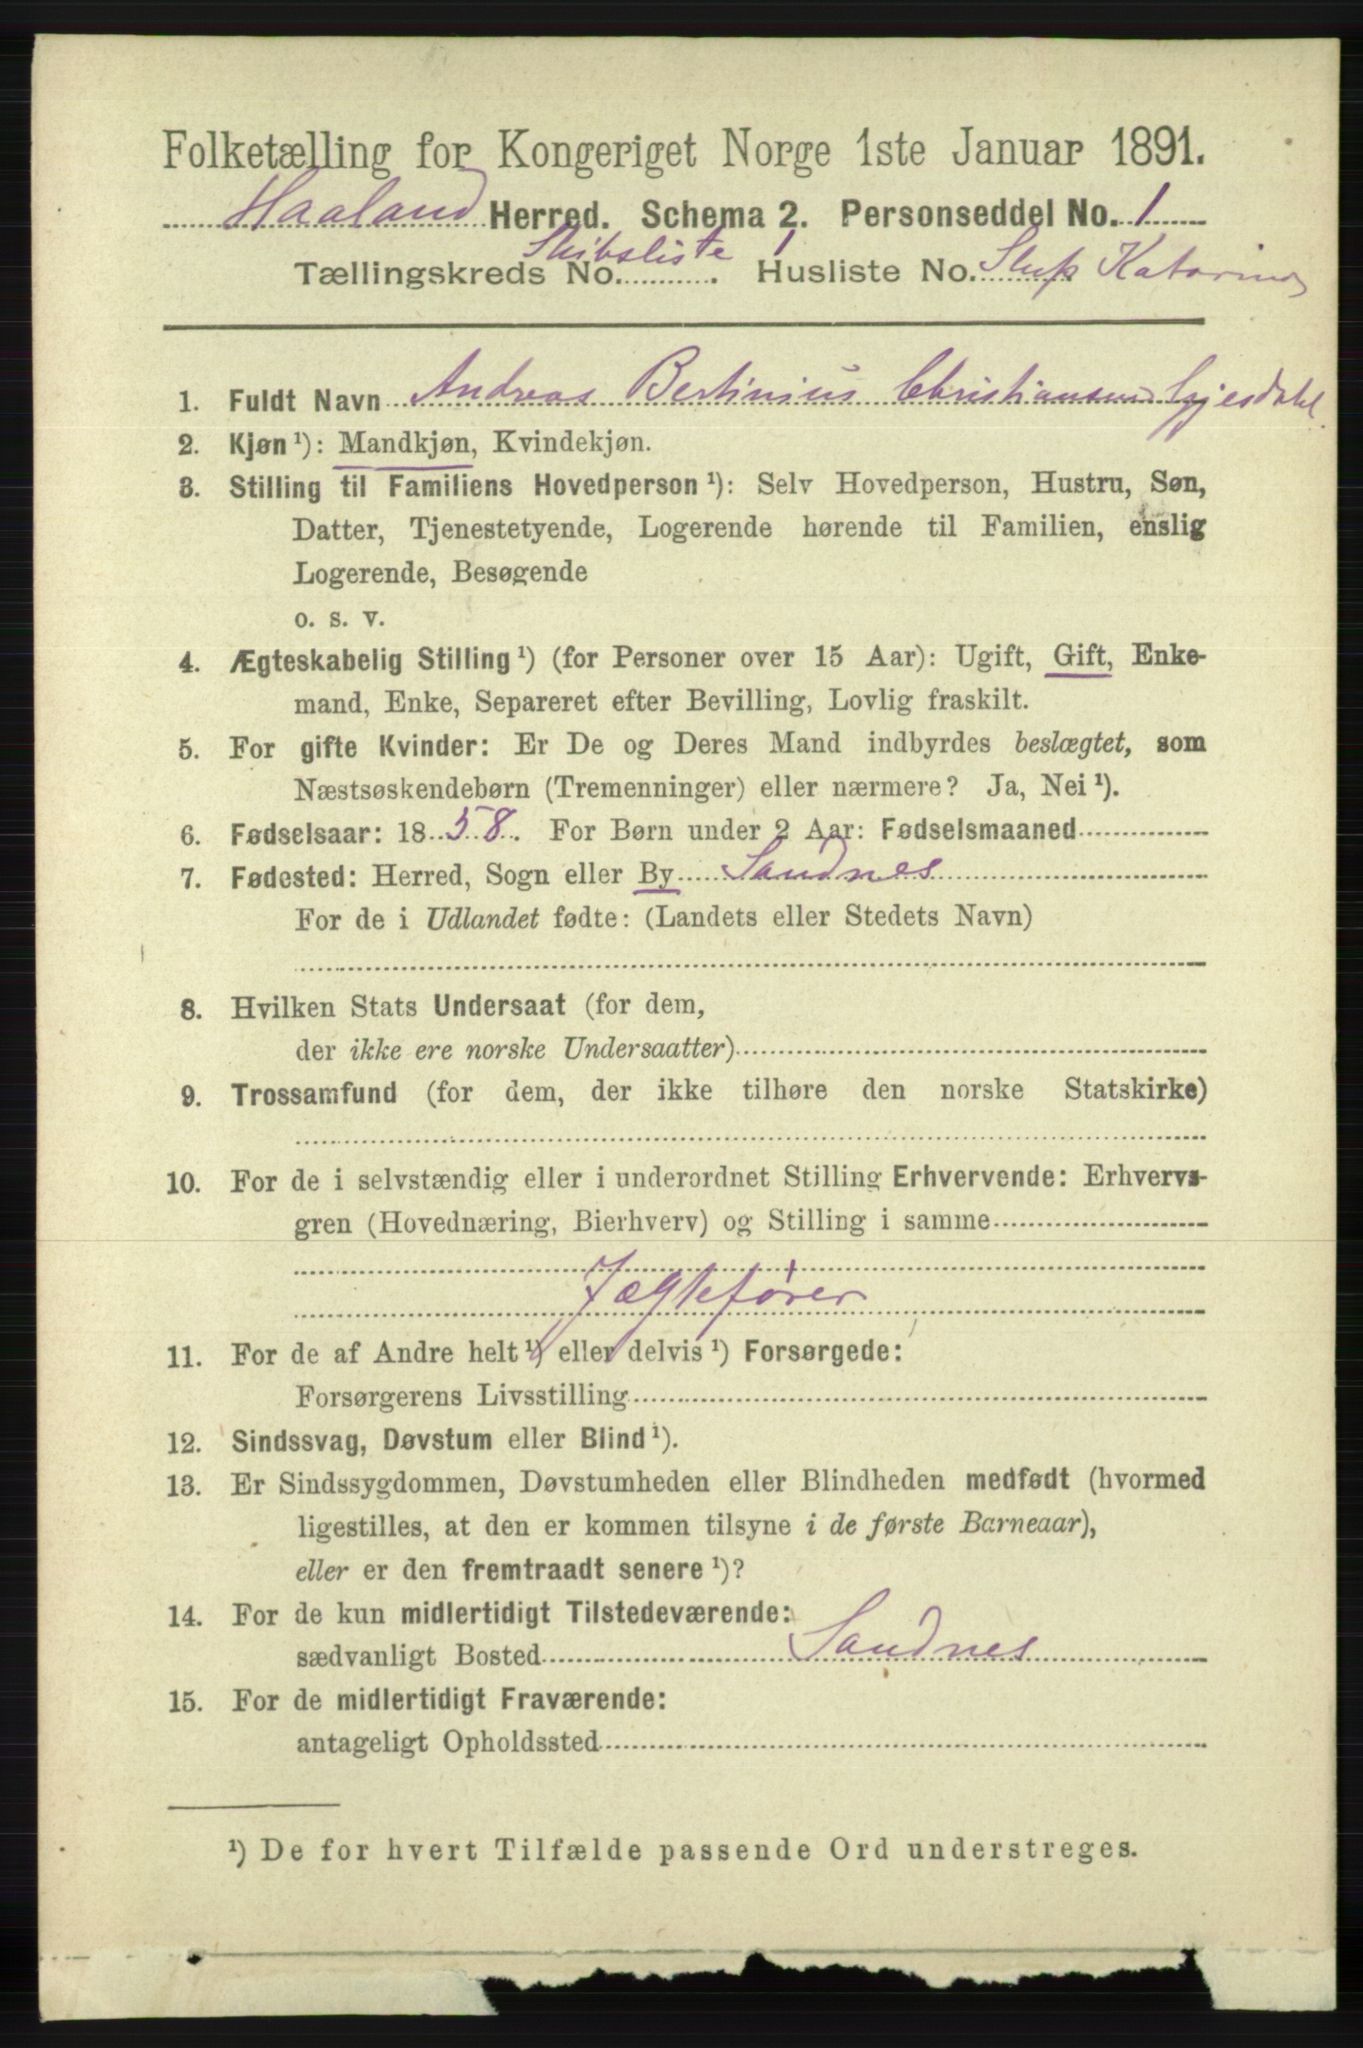 Folketælling for Kongeriget Norge 1ste Januar 1891.
Haaland Herred. Schema 2. Personseddel No. 1
Tællingskreds No. Skibsliste 1. Husliste No. Slup Katarina
1. Fuldt Navn Andreas Bertinius Christiansen Gjesdahl
2. Kjøn ¹): Mandkjøn, Kvindekjøn.
3. Stilling til Familiens Hovedperson ¹): Selv Hovedperson, Hustru, Søn,
Datter, Tjenestetyende, Logerende hørende til Familien, enslig
Logerende, Besøgende
o. s. v.
4. Ægteskabelig Stilling ¹) (for Personer over 15 Aar): Ugift, Gift, Enke-
mand, Enke, Separeret efter Bevilling, Lovlig fraskilt.
5. For gifte Kvinder: Er De og Deres Mand indbyrdes beslægtet, som
Næstsøskendebørn (Tremenninger) eller nærmere? Ja, Nei ¹).
6. Fødselsaar: 1858. For Børn under 2 Aar: Fødselsmaaned
7. Fødested: Herred, Sogn eller By Sandnes
For de i Udlandet fødte: (Landets eller Stedets Navn)
8. Hvilken Stats Undersaat (for dem,
der ikke ere norske Undersaatter)
9. Trossamfund (for dem, der ikke tilhøre den norske Statskirke)
10. For de i selvstændig eller i underordnet Stilling Erhvervende: Erhvervs-
gren (Hovednæring, Bierhverv) og Stilling i samme
Jægtefører
11. For de af Andre helt ¹) eller delvis ¹) Forsørgede:
Forsørgerens Livsstilling
12. Sindssvag, Døvstum eller Blind ¹).
13. Er Sindssygdommen, Døvstumheden eller Blindheden medfødt (hvormed
ligestilles, at den er kommen tilsyne i de første Barneaar),
eller er den fremtraadt senere ¹)?
14. For de kun midlertidigt Tilstedeværende:
sædvanligt Bosted Sandnes
15. For de midlertidigt Fraværende:
antageligt Opholdssted
¹) De for hvert Tilfælde passende Ord understreges.